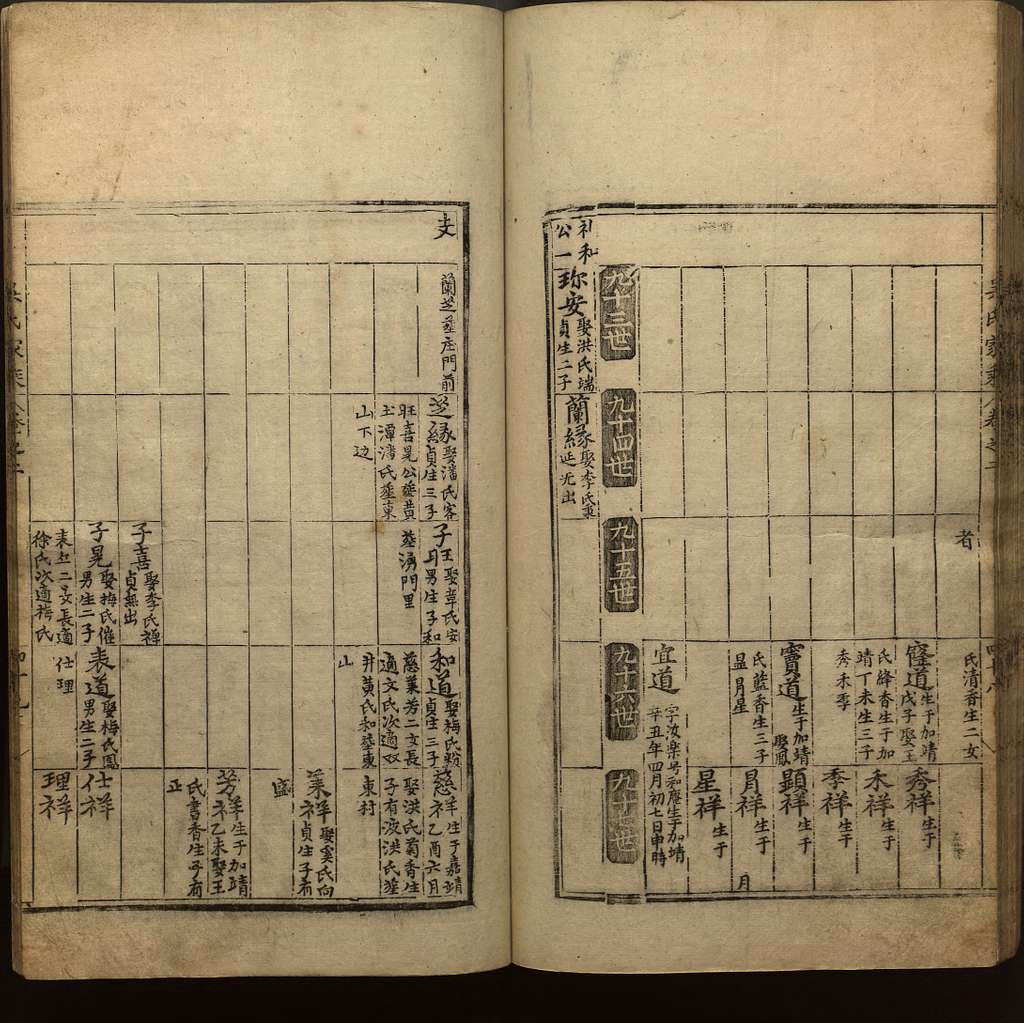 者
氏清香生二女
窿道生于加靖
戊子娶王
氏絳香生于加
靖丁未生三子
秀禾季
秀祥生于
禾祥生于
季祥生于
寳道生于加靖
娶鳳
氏藍香生三子
显肙星
顕祥生于
肙祥生于
月
星祥生于
宜道
字汝楽号和
生于加靖
辛丑年四月初七日申時
九十三世
九十四世
九十五世
九十六世
九十七世
礼和
公一
珎安娶洪氏端
貞生二子
蘭縁娶李氏
延无出
支
蘭芝塟庄門前
芝縁娶潘氏客
貞生三子
旺喜晃公塟黄
土潭潘氏塟東
山下边
子王娶韋氏安
月男生子和
塟湧門里
和道娶梅氏
貞生三子
慈葉芳二女長
適文氏次適双
井黄氏和塟東
山
慈祥生于嘉靖
乙酉六月
娶洪氏菊香生
子有波洪氏塟
東村
葉祥娶奚氏向
貞生子有
盛
芳祥生于加靖
乙未娶王
氏書香生子有
正
子喜娶李氏
貞無出
子晃娶梅氏催
男生二子
表 二女長適
徐氏次適梅氏
表道娶梅氏鳳
男生二子
仕理
仕祥
理祥